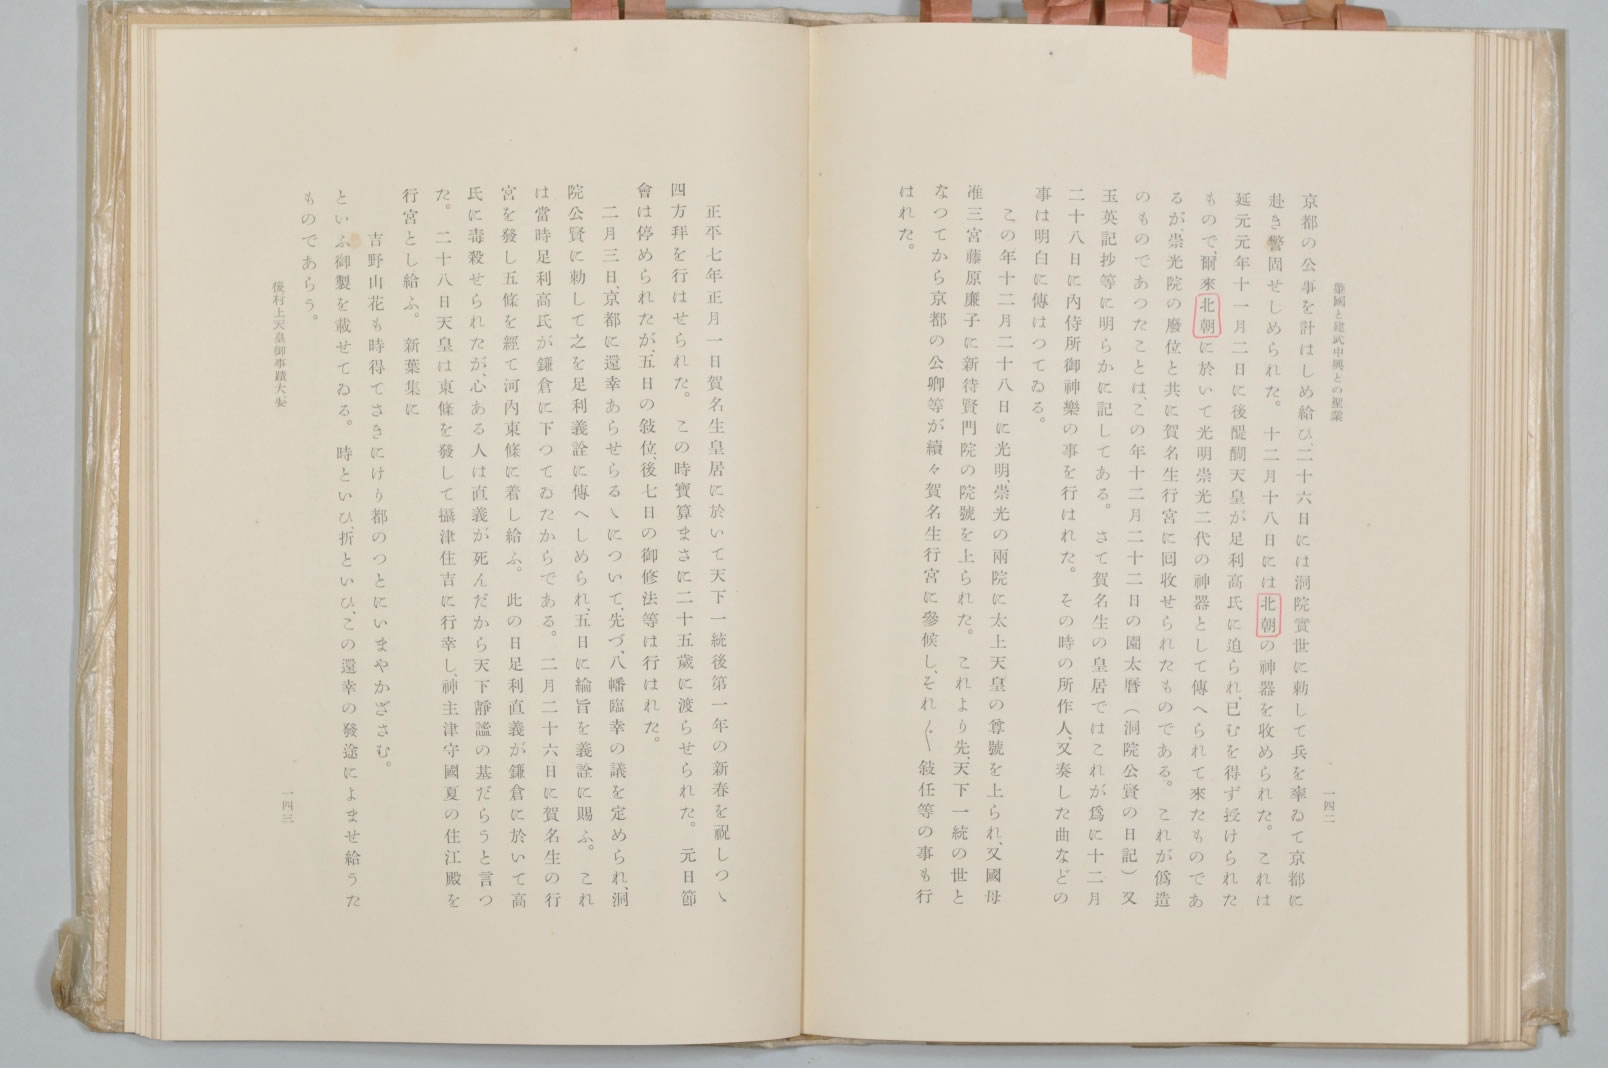 肇國と建武中興との聖業
一四二
京都の公事を計はしめ給ひ、二十六日には洞院實世に勅して兵を率ゐて京都に
赴き警固せしめられた。十二月十八日には北朝の神器を收められた。これは
延元元年十一月二日に後醍醐天皇が足利高氏に迫られ、已むを得ず授けられた
もので、爾來北朝に於いて光明崇光二代の神器として傳へられて來たものであ
るが、崇光院の廢位と共に賀名生行宮に回收せられたものである。これが僞造
のものであつたことは、この年十二月二十二日の園太曆（洞院公賢の日記）又
玉英記抄等に明らかに記してある。さて賀名生の皇居ではこれが爲に十二月
二十八日に內侍所御神樂の事を行はれた。その時の所作人、又奏した曲などの
事は明白に傳はつてゐる。
この年十二月二十八日に光明、崇光の兩院に太上天皇の尊號を上られ、又國母
准三宮藤原廉子に新待賢門院の院號を上られた。これより先、天下一統の世と
なつてから京都の公卿等が續々賀名生行宮に參候し、それ〲敍任等の事も行
はれた。
正平七年正月一日賀名生皇居に於いて天下一統後第一年の新春を祝しつゝ
四方拜を行はせられた。この時寶算まさに二十五歲に渡らせられた。元日節
會は停められたが、五日の敍位、後七日の御修法等は行はれた。
二月三日、京都に還幸あらせらるゝについて、先づ、八幡臨幸の議を定められ、洞
院公賢に勅して之を足利義詮に傳へしめられ、五日に綸旨を義詮に賜ふ。これ
は當時足利高氏が鎌倉に下つてゐたからである。二月二十六日に賀名生の行
宮を發し五條を經て河內東條に着し給ふ。此の日足利直義が鎌倉に於いて高
氏に毒殺せられたが、心ある人は直義が死んだから天下靜謐の基だらうと言つ
た。二十八日天皇は東條を發して攝津住吉に行幸し、神主津守國夏の住江殿を
行宮とし給ふ。新葉集に
吉野山花も時得てさきにけり都のつとにいまやかざさむ。
といふ御製を載せてゐる。時といひ、折といひ、この還幸の發途によませ給うた
ものであらう。
後村上天皇御事蹟大要
一四三